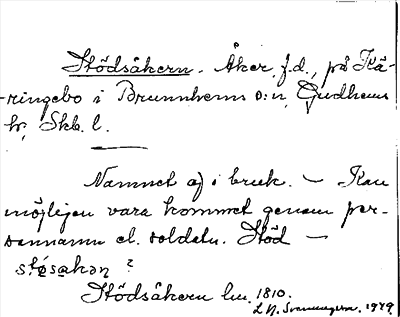 Stödsåkern. Åker, f.d., på Kä-
ringebo i Brunnhems s:n, Gudhems
hd, Skb. l.
Namnet ej i bruk. – Kan
möjligen vara kommet genom per-
sonnamn el. soldatn. Stöd –
stø̨sakən ?
Stödsåkern lm. 1810.
L. N. Svanungsson. 1949.